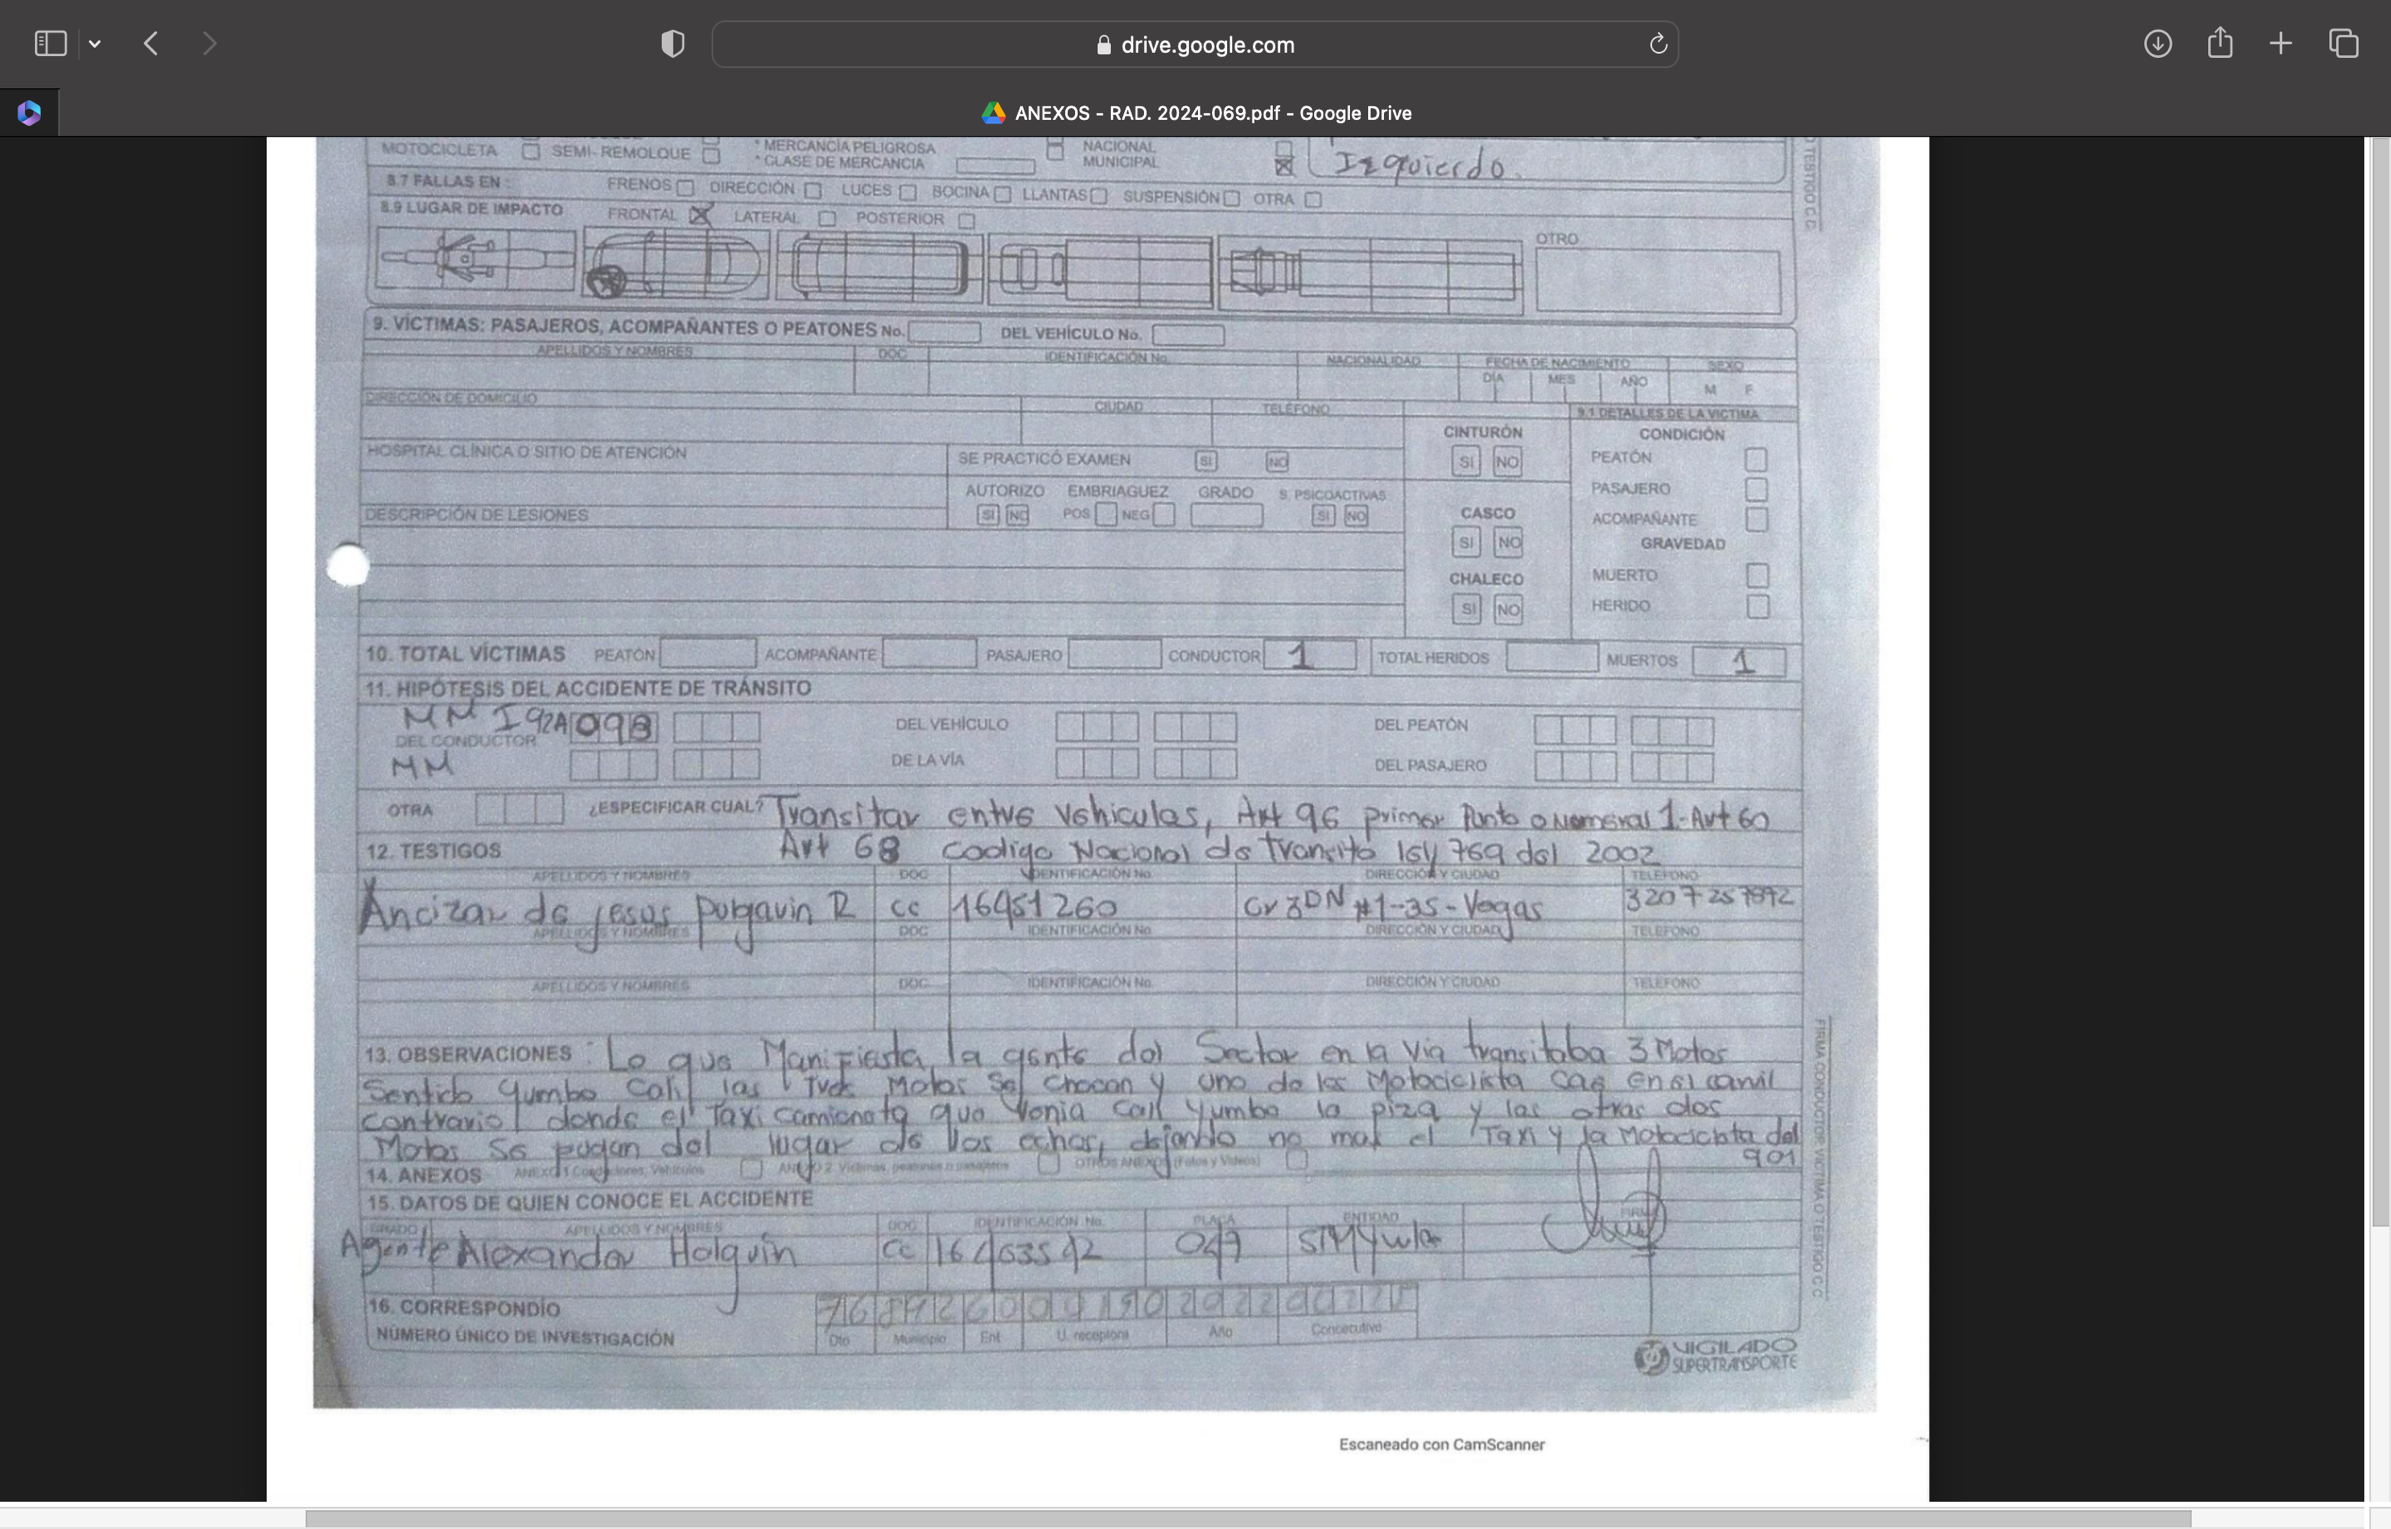 drive.google.com
ANEXOS - RAD. 2024-069.pdf - Google Drive
MOTOCICLETA SEMI-REMOLQUE * MERCANCÍA PELIGROSA NACIONAL
* CLASE DE MERCANCIA MUNICIPAL Izquierdo.
8.7 FALLAS EN : FRENOS DIRECCIÓN LUCES BOCINA LLANTAS SUSPENSIÓN OTRA
8.9 LUGAR DE IMPACTO FRONTAL LATERAL POSTERIOR
OTRO
9. VÍCTIMAS: PASAJEROS, ACOMPAÑANTES O PEATONES No. DEL VEHÍCULO No.
APELLIDOS Y NOMBRES DOC IDENTIFICACIÓN No. NACIONALIDAD FECHA DE NACIMIENTO SEXO
DÍA MES AÑO M F
DIRECCIÓN DE DOMICILIO CIUDAD TELÉFONO 9.1 DETALLES DE LA VICTIMA
CINTURÓN CONDICIÓN
HOSPITAL CLÍNICA O SITIO DE ATENCIÓN SE PRACTICÓ EXAMEN SI NO SI NO PEATÓN
AUTORIZO EMBRIAGUEZ GRADO S. PSICOACTIVAS PASAJERO
DESCRIPCIÓN DE LESIONES SI NO POS NEG SI NO CASCO ACOMPAÑANTE
SI NO GRAVEDAD
CHALECO MUERTO
SI NO HERIDO
10. TOTAL VÍCTIMAS PEATÓN ACOMPAÑANTE PASAJERO CONDUCTOR 1 TOTAL HERIDOS MUERTOS 1
11. HIPÓTESIS DEL ACCIDENTE DE TRÁNSITO
MM I92A 098 DEL VEHÍCULO DEL PEATÓN
DEL CONDUCTOR
MM DE LA VÍA DEL PASAJERO
OTRA ¿ESPECIFICAR CUAL? Transitar entre vehiculos, Art 96 primer Punto o Numeral 1-Art 60
12. TESTIGOS Art 68 codigo Nacional de transito ley 769 del 2002
APELLIDOS Y NOMBRES DOC IDENTIFICACIÓN No. DIRECCIÓN Y CIUDAD TELÉFONO
Ancizar de jesus R cc 16451260 Cr 3DN #1-35-Vegas
APELLIDOS Y NOMBRES DOC IDENTIFICACIÓN No. DIRECCIÓN Y CIUDAD TELÉFONO
APELLIDOS Y NOMBRES DOC IDENTIFICACIÓN No. DIRECCIÓN Y CIUDAD TELÉFONO
13. OBSERVACIONES : Lo que Manifiesta la gente del Sector en la via transitaba 3 Motos
Sentido Yumbo Cali las tres Motos se chocan y uno de los Motociclista cae en el carril
contrario donde el Taxi camioneta que venia Cali Yumbo lo piza y las otras dos
Motos se fugan del lugar de los echos, dejando no mas el Taxi y la Motocicleta del
901
14. ANEXOS ANEXO 1 Conductores, Vehículos ANEXO 2 Víctimas, peatones o pasajeros OTROS ANEXOS (Fotos y Videos)
15. DATOS DE QUIEN CONOCE EL ACCIDENTE
GRADO APELLIDOS Y NOMBRES DOC IDENTIFICACIÓN No. PLACA ENTIDAD FIRMA
Agente Alexander Holguin cc 047
16. CORRESPONDÍO
NÚMERO ÚNICO DE INVESTIGACIÓN Dto Municipio Ent U. receptora Año Consecutivo
VIGILADO
SUPERTRANSPORTE
O TESTIGO C.C.
FIRMA CONDUCTOR VÍCTIMA O TESTIGO C.C.
Escaneado con CamScanner